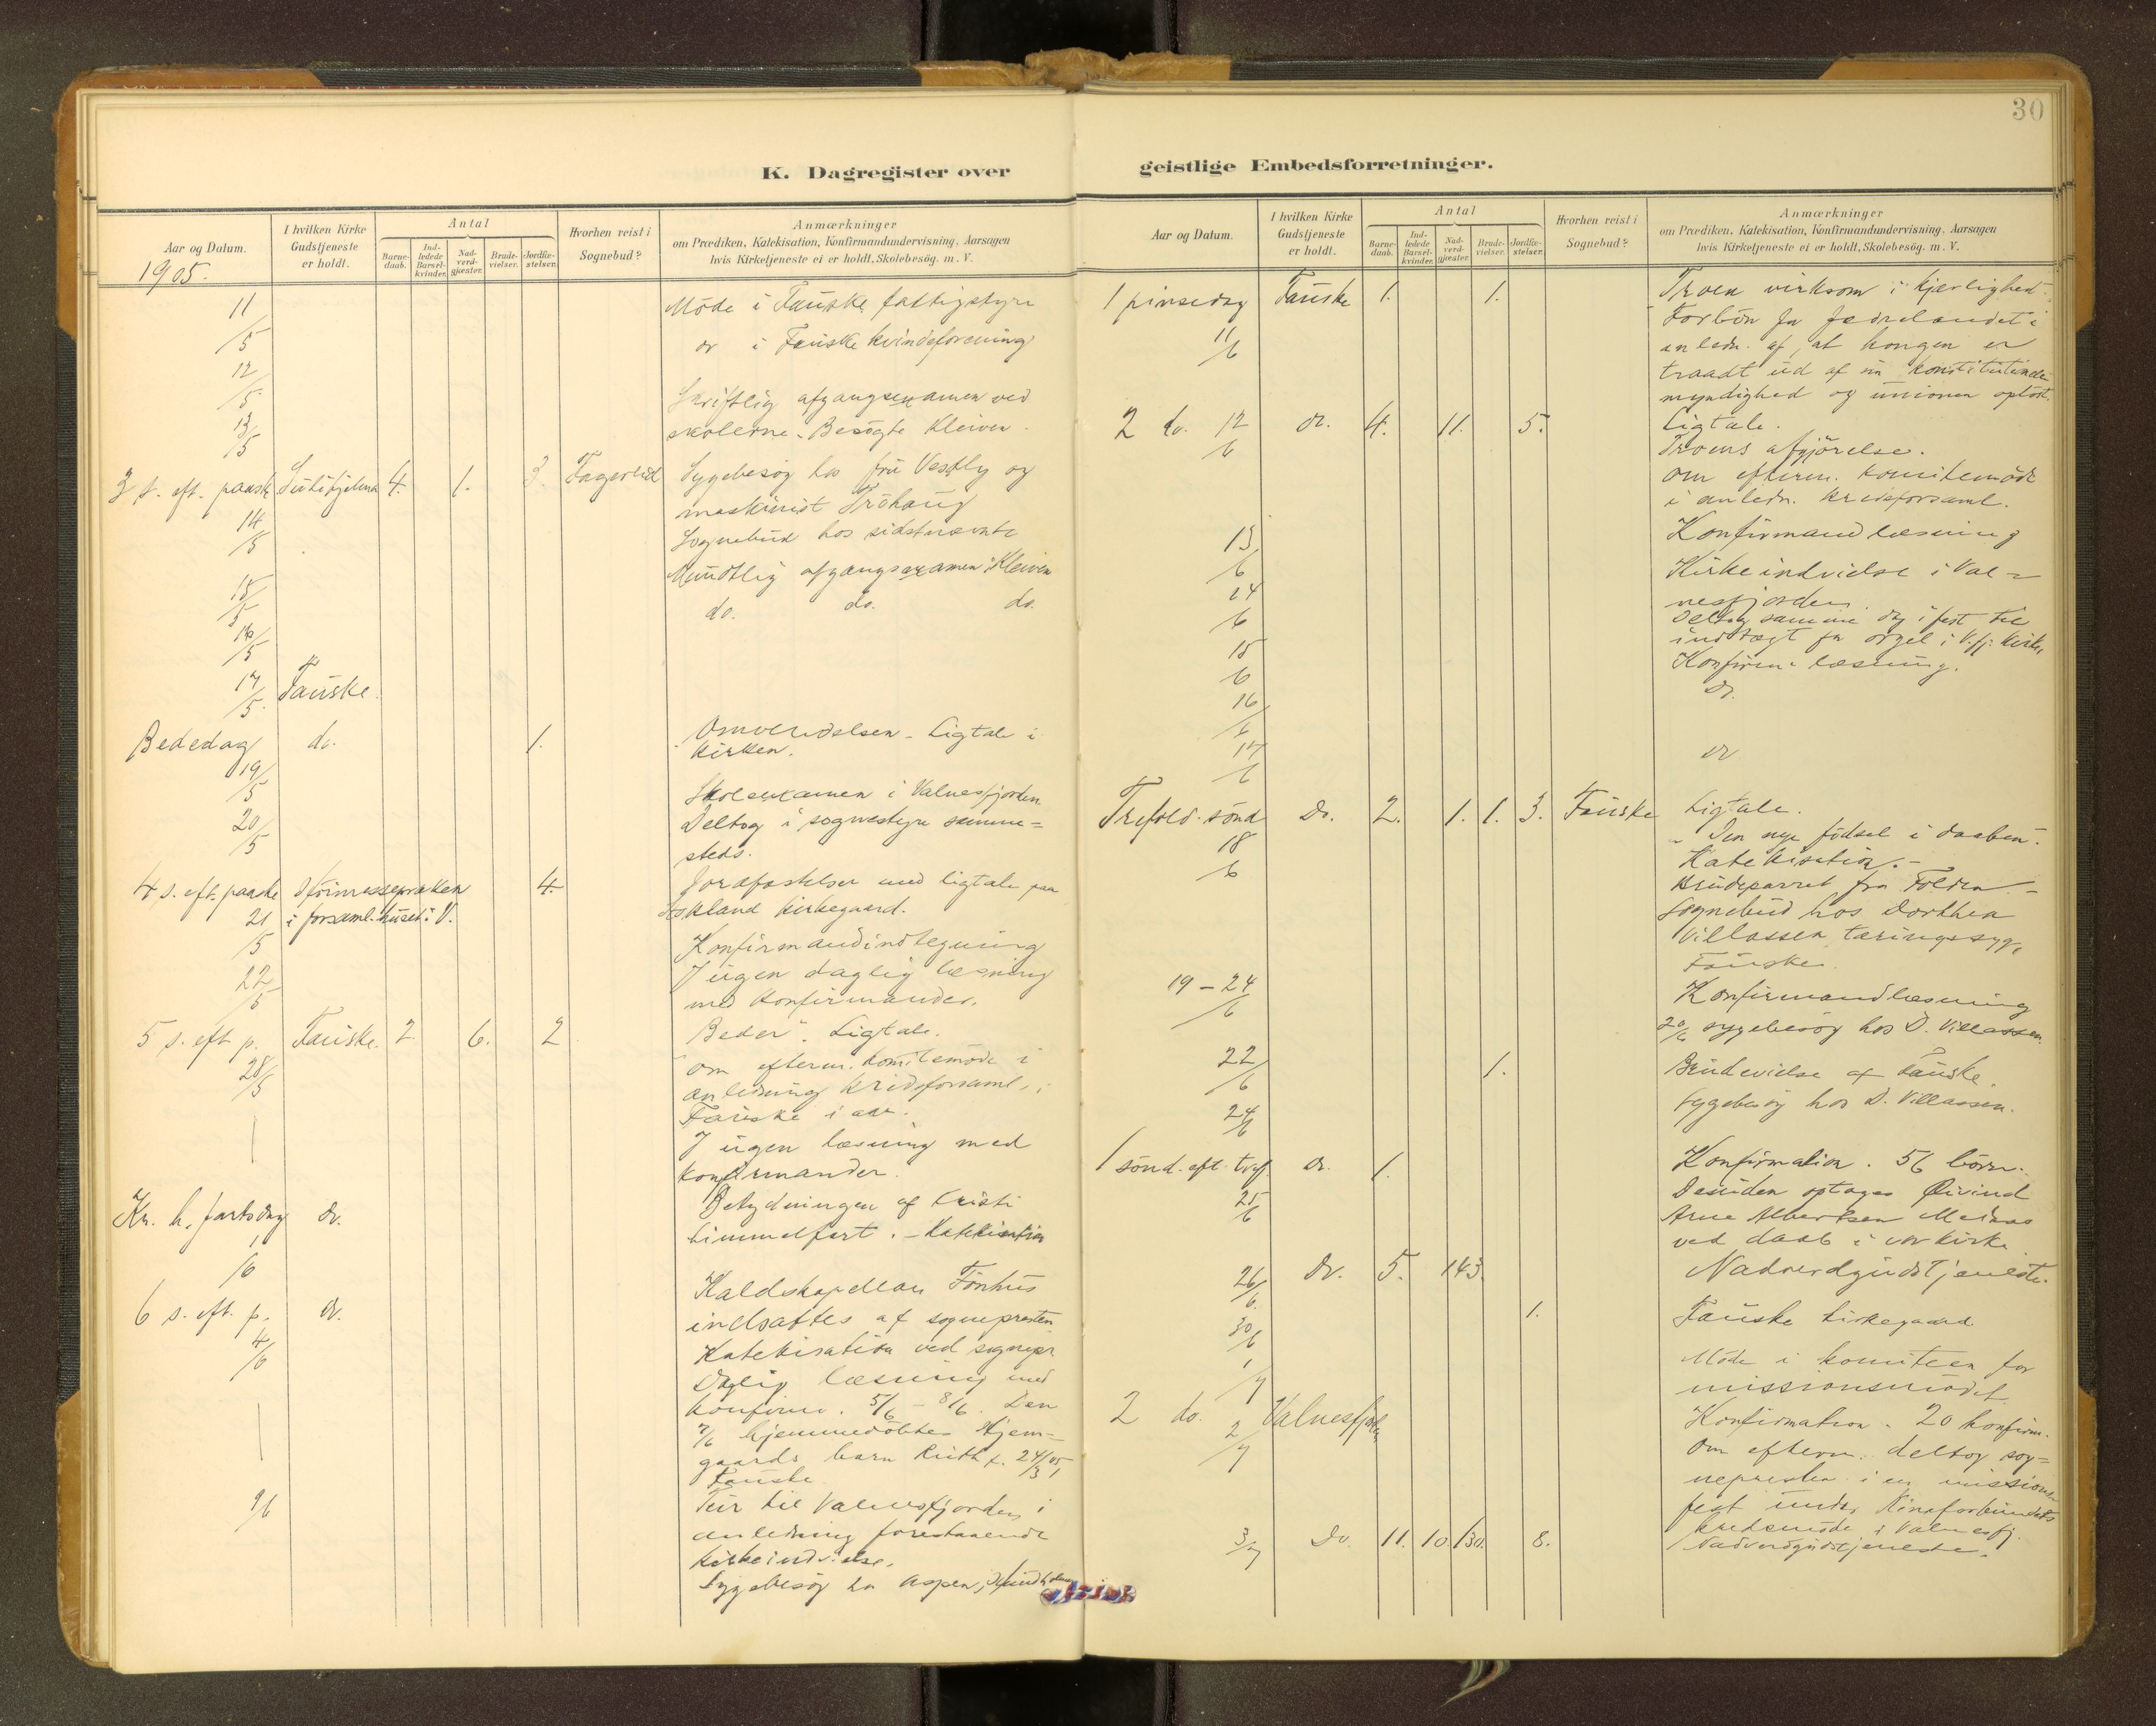 30
K. Dagregister over
Aar og Datum.
I hvilken Kirke Gudstjeneste er holdt.
Antal
Barne-daab.
Ind-ledede Barsel-kvinder.
Nad-verd-gjæster.
Brude-vielser.
Jordfæ-stelser.
Hvorhen reist i Sognebud?
Anmærkninger
om Prædiken, Katekisation, Konfirmandundervisning, Aarsagen
hvis Kirketjeneste ei er holdt, Skolebesög. m. V.
1905.
11/5 Möde i Fauske fattigstyre
do i Fauske kvindeforening
12/5 Skriftlig afgangsexamen ved
13/5 skolerne. Besögte Kleiven.
3 s. eft. paaske Sulitjelma 4. 1. 3. Fagerlid Sygebesög hos fru Vestly og
14/5 maskinist Tröhaug
Sognebud hos sidstnævnte
15/5 Mundtlig afgangsexamen i Kleiven
16/5 do. do. do.
17/5 Fauske.
Bededag do. 1. Omvendelsen - Ligtale i
kirken.
19/5 Skolexamen i Valnesfjorden
20/5 Deltog i sognestyre samme=
steds.
4 s. eft. paaske 4. Jordfæstelser med ligtale paa
21/5 i forsaml.huset i V. kirkegaard.
Konfirmandindtegning
22/5 I ugen daglig læsning
med konfirmander.
5 s. eft p. Fauske. 2. 6. 2 "Beder". Ligtale.
28/5 om efterm. komitemöde i
anledning kredsforsaml. i
Fauske i aar.
I ugen læsning med
konfirmander.
Kr. h. fartsdag do. Betydningen af Kristi
1/6 himmelfart. - Katekisation
Kaldskapellan Fönhus
6 s. eft. p. do. indsattes af sognepresten
4/6 Katekisation ved sognepr.
Daglig læsning med
konfirm. 5/6 - 8/6. Den
7/6 hjemmedöbtes Hjem=
gaards barn Ruth f. 24/3 05,
Fauske
9/6 Tur til Valnesfjorden i
anledning forestaaende
kirkeindvielse.
Sygebesög hos Aspen,
geistlige Embedsforretninger.
Aar og Datum.
I hvilken Kirke Gudstjeneste er holdt.
Antal
Barne-daab.
Ind-ledede Barsel-kvinder.
Nad-verd-gjæster.
Brude-vielser.
Jordfæ-stelser.
Hvorhen reist i Sognebud?
Anmærkninger
om Prædiken, Katekisation, Konfirmandundervisning, Aarsagen
hvis Kirketjeneste ei er holdt, Skolebesög. m. V.
1 pinsedag Fauske 1. 1. Troen virksom i kjærlighed.
11/6 Forbön for fædrelandet i
anledn. af, at kongen er
traadt ud af sin konstitutionelle
myndighed og unionen oplöst.
2 do. 12/6 do. 4. 11. 5. Ligtale.
Troens afgjörelse.
om efterm. komitemöde
i anledn. kredsforsaml.
13/6 Konfirmandlæsning
14/6 Kirkeindvielse i Val=
nesfjorden.
Deltog samme dag i fest til
indtægt for orgel i V.fj. kirke
15/6 Konfirm. læsning.
16/6 do.
17/6 do
Trefold. sönd do. 2. 1. 1. 3. Fauske Ligtale.
18/6 "Den nye födsel i daaben".
Katekisation. -
Brudeparret fra Folden -
Sognebud hos Dorthea
Villassen, tæringssyg,
Fauske.
19 - 24/6 Konfirmandlæsning
20/6 sygebesög hos D. Villassen.
22/6 1. Brudevielse af Fauske.
24/6 Sygebesög hos D. Villassen.
1 sönd. eft. tref. do. 1. Konfirmation. 56 börn.
25/6 Desuden optages Øivind
Arne Albertsen
ved daab i vor kirke.
26/6 do. 5. 143. Nadverdgudstjeneste.
30/6 1. Fauske kirkegaard.
1/7 Möde i komiteen for
missionsmödet
2 do. 2/7 Valnesfjorden Konfirmation. 20 konfirm.
Om efterm. deltog sog=
nepresten i en missions-
fest under Kinaforbundets
kredsmöde i Valnesfj.
3/7 do. 11. 10. 130. 8. Nadverdgudstjeneste.